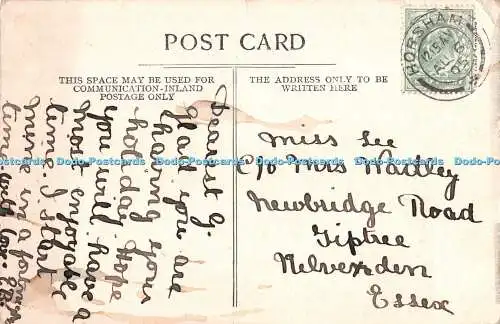 POST CARD
THIS SPACE MAY BE USED FOR
COMMUNICATION-INLAND
POSTAGE ONLY
THE ADDRESS ONLY TO BE
WRITTEN HERE
HORSHAM
AU 6
05
Dearest G.
Glad you are
having your
holiday hope
you will have a
most enjoyable
time. I start
mine in a
time with love
Miss Lee
C/o Mrs Wadley
Newbridge Road
Tiptree
Kelvexden
Essex
Dodo-Postcards Dodo-Postcards Dodo-Postcards Dodo-Postcards